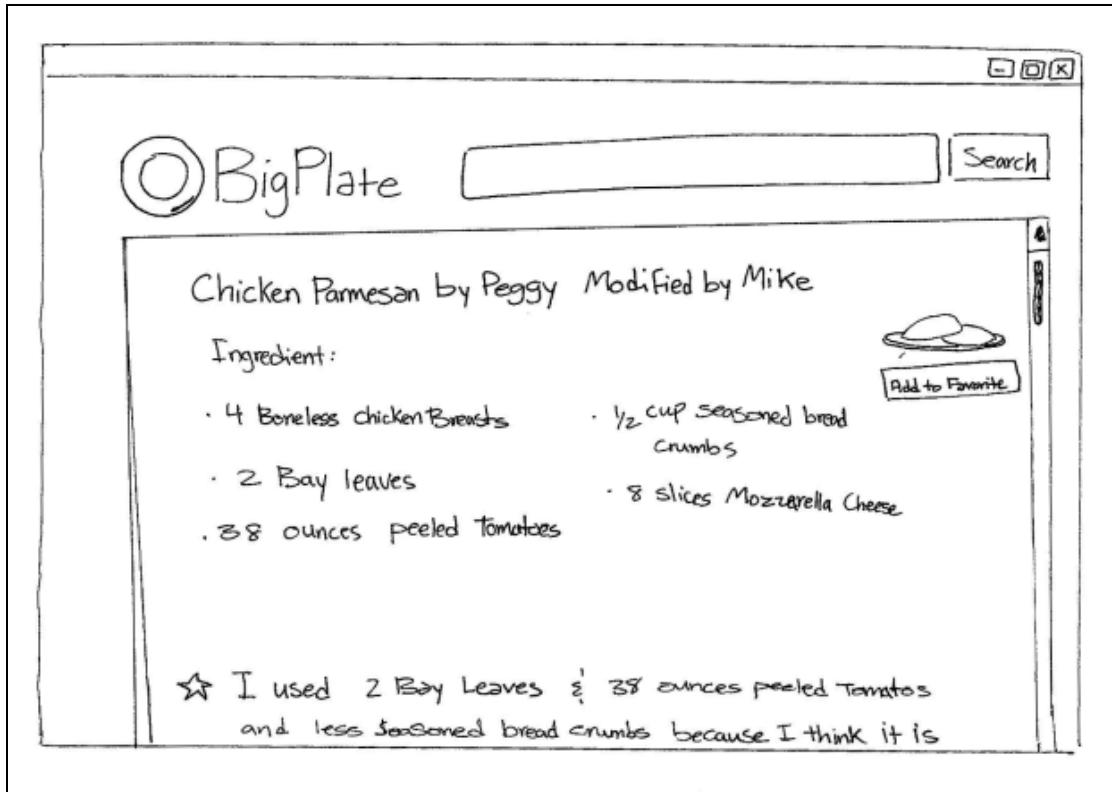 BigPlate
Search
Chicken Parmesan by Peggy Modified by Mike
Ingredient:
Add to Favorite
· 4 Boneless chicken Breasts
· 2 Bay leaves
· 38 ounces peeled Tomatoes
· 1/2 cup seasoned bread
crumbs
· 8 slices Mozzarella Cheese
☆ I used 2 Bay Leaves & 38 ounces peeled Tomatos
and less seasoned bread crumbs because I think it is